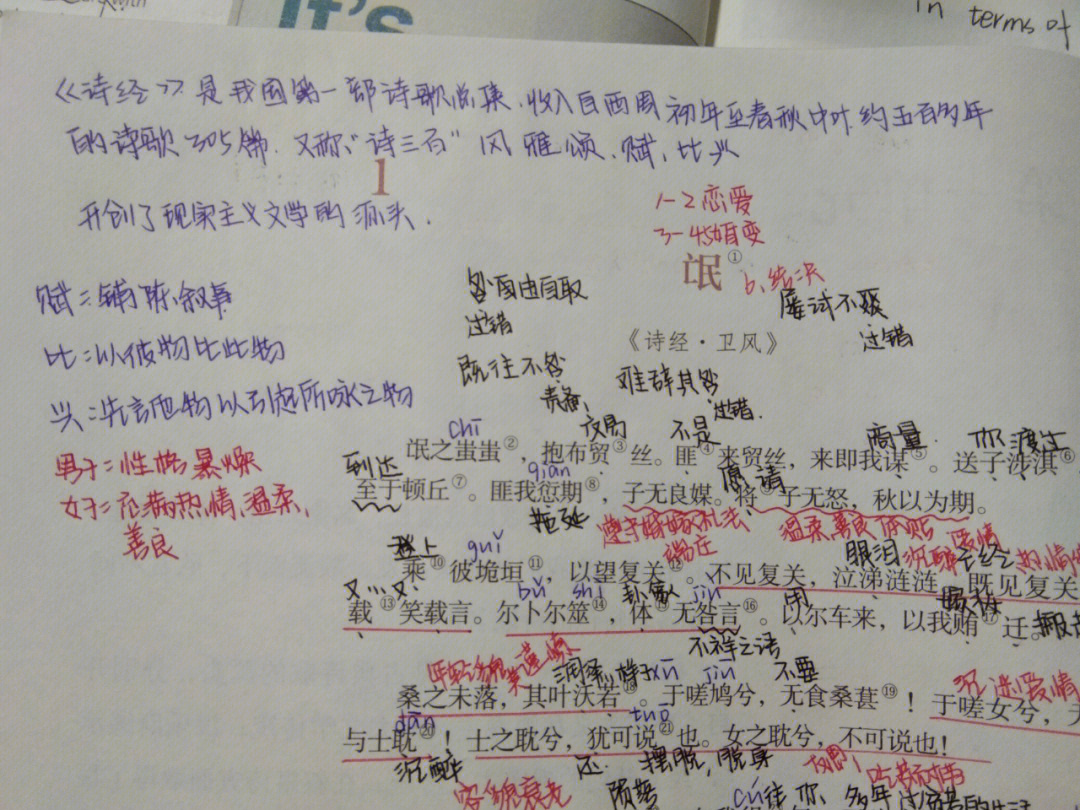 It's
in terms of
《诗经》是我国第一部诗歌总集.收入自西周初年至春秋中叶.约五百多年
的诗歌305篇.又称"诗三百"风雅颂.赋.比兴
1
开创了现实主义文学的源头.
1-2恋爱
3-4婚变
氓①
6.结决
赋:铺陈.叙事
比:以彼物比此物
兴:先言他物以引起所咏之物
咎由自取
过错
屡试不爽
过错
《诗经·卫风》
既往不咎
责备
难辞其咎
过错.
男子:性格暴燥
女子:充满热情,温柔,
善良
chī
交易
不是
商量
渡过
氓之蚩蚩②,抱布贸③丝。匪④来贸丝,来即我谋⑤。送子涉淇⑥
到达
qiān
愿 请
至于顿丘⑦。匪我愆期⑧,子无良媒。将⑨子无怒,秋以为期。
拖延
遵守婚姻礼法
温柔善良体贴
登上
guǐ
端庄
眼泪
沉醉爱情
乘⑩彼垝垣⑪,以望复关⑫。不见复关,泣涕涟涟。既见复关
又…又
bǔ shì
jiù
用
载⑬笑载言。尔卜尔筮⑭,体⑮无咎言⑯。以尔车来,以我贿⑰迁。
不祥之话
年轻貌美
润泽
xū jiū
不要
沉迷爱情
桑之未落,其叶沃若⑱。于嗟鸠兮,无食桑葚⑲!于嗟女兮,无
dān
tuō
与士耽⑳!士之耽兮,犹可说㉑也。女之耽兮,不可说也!
沉醉
还
摆脱,脱身
容貌衰老
陨落
往
你
多年